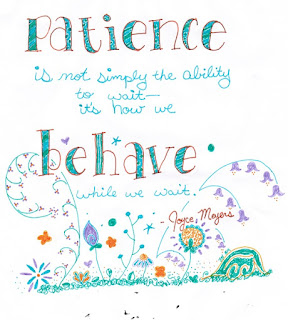 patience
is not simply the ability
to wait—
it's how we
behave
while we wait.
- Joyce Meyers